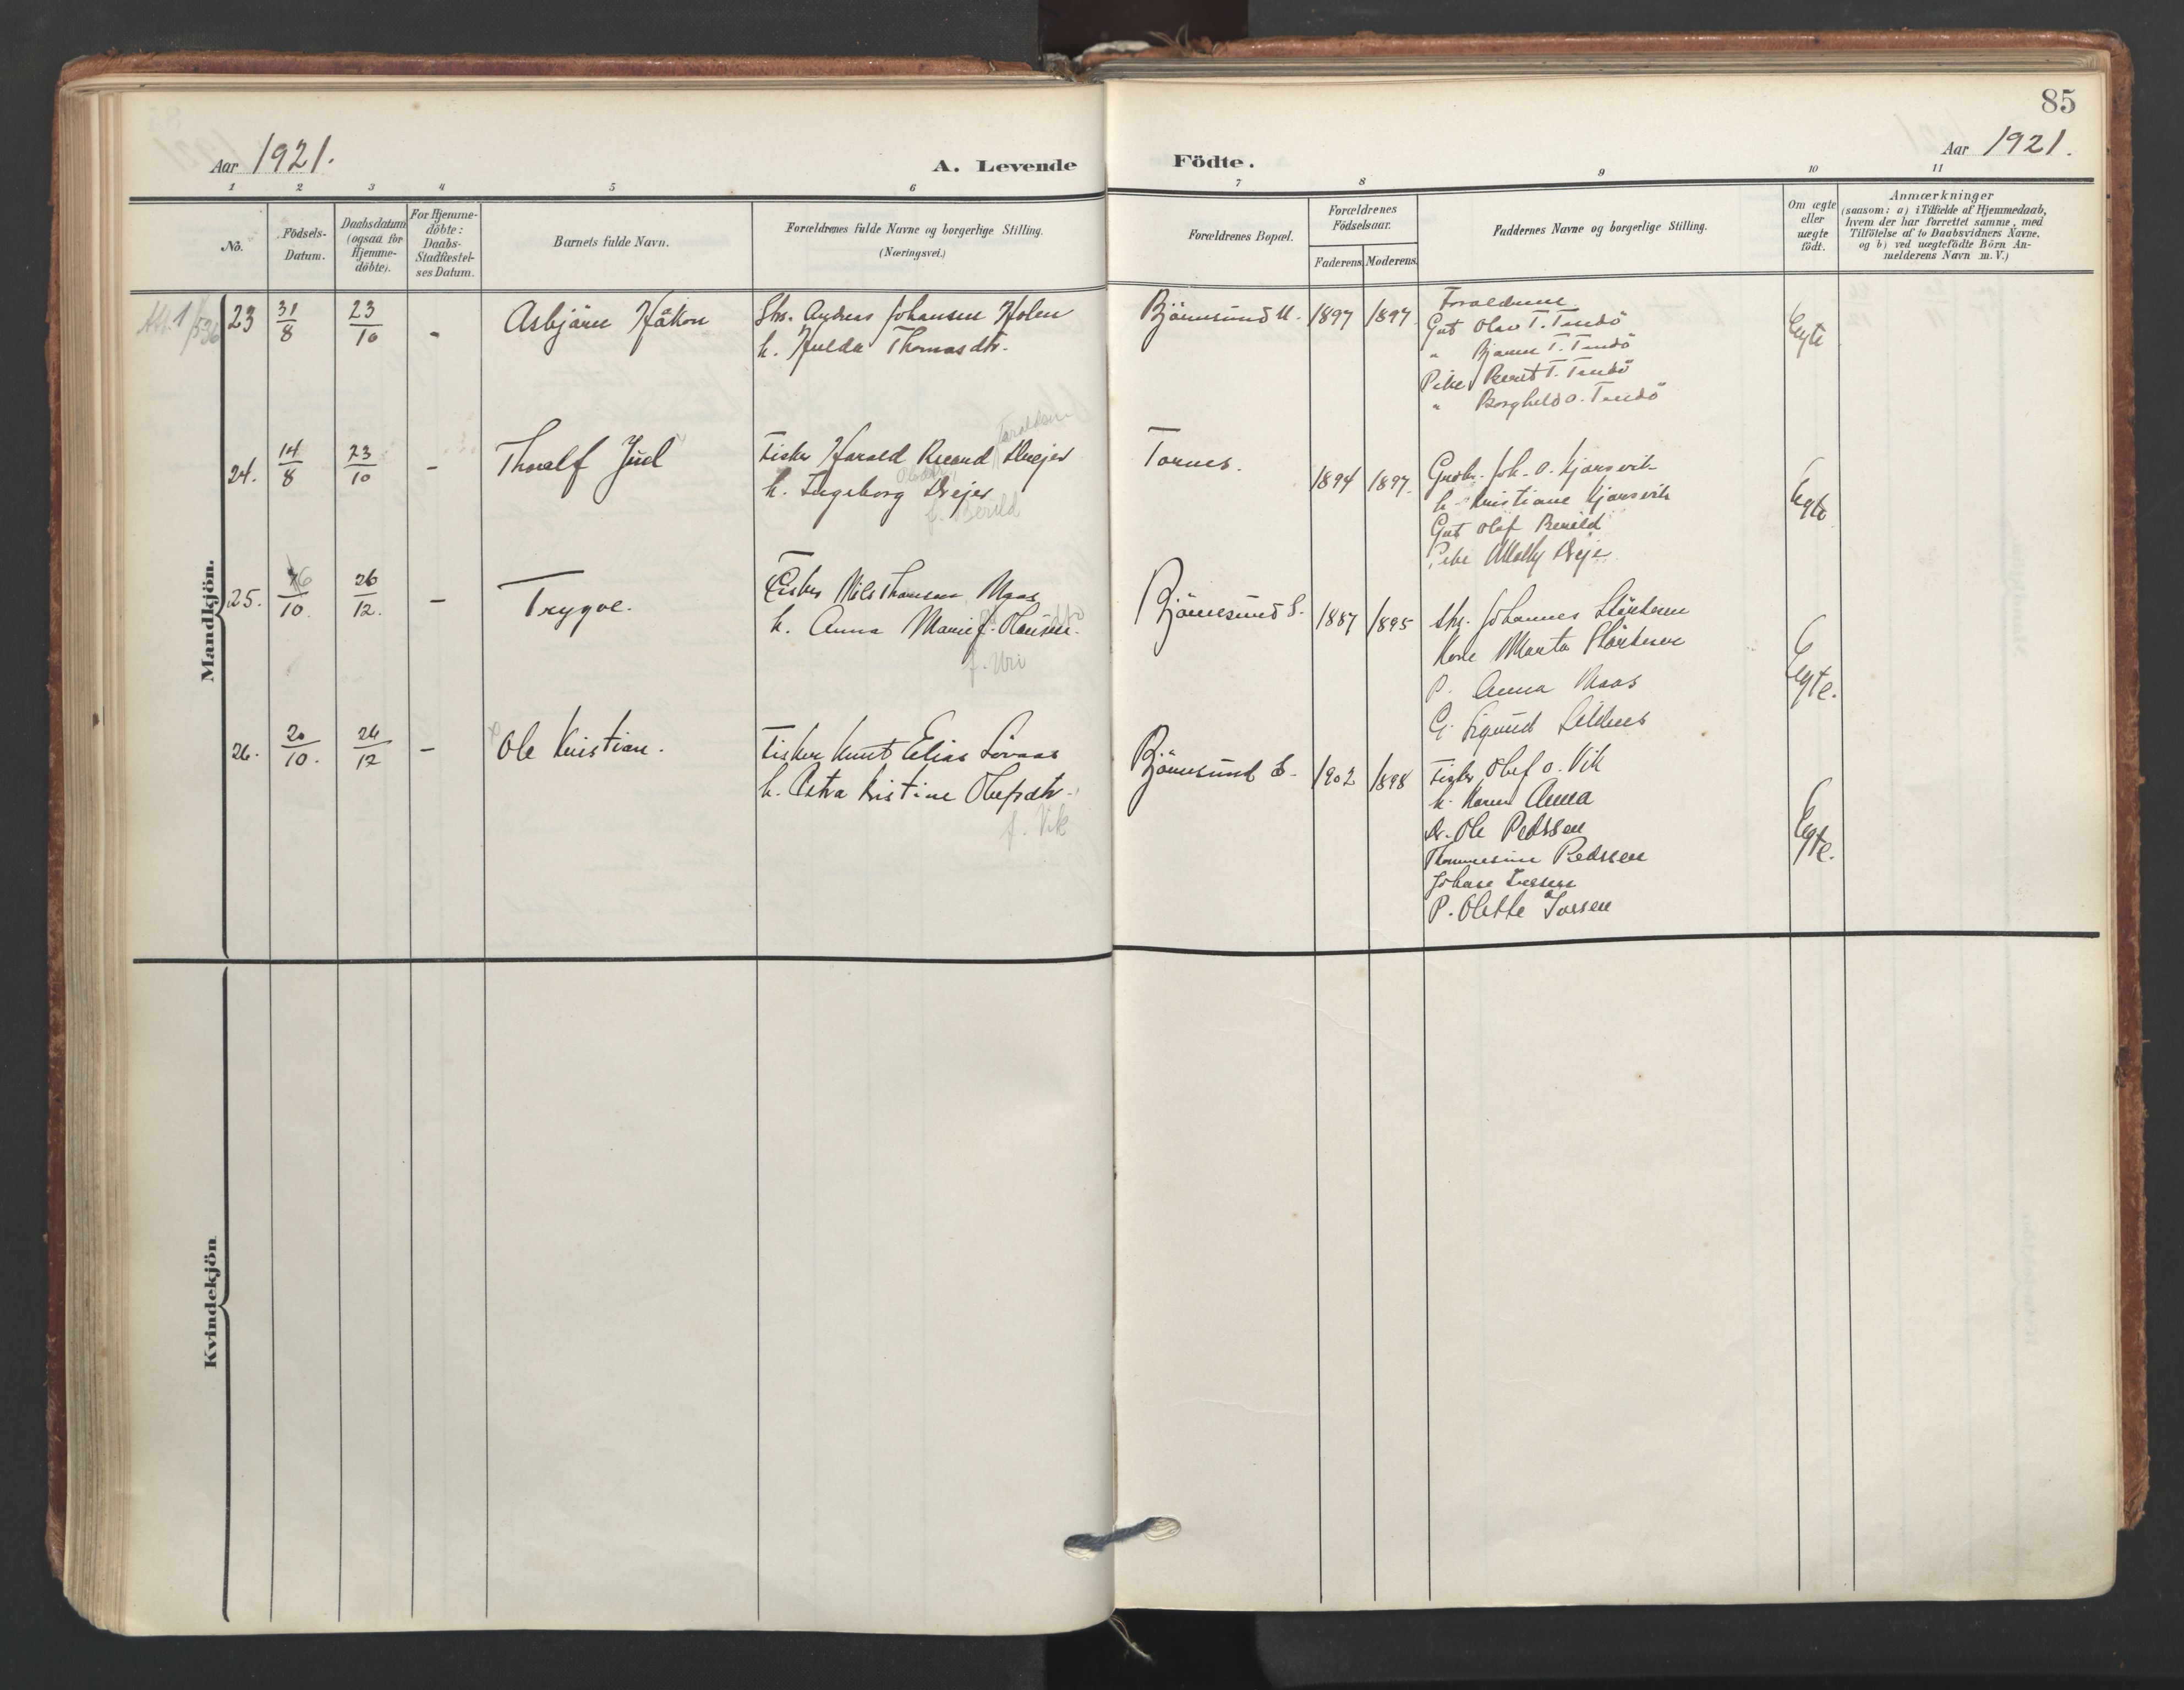 85
Aar 1921.
A. Levende Födte.
Aar 1921.
1 2 3 4 5 6 7 8 9 10 11
No.
Födsels-
Datum.
Daabsdatum
(ogsaa for
Hjemme-
döbte).
For Hjemme-
döbte:
Daabs-
Stadfæstel-
ses Datum.
Barnets fulde Navn.
Forældrenes fulde Navne og borgerlige Stilling.
(Næringsvei.)
Forældrenes Bopæl.
Forældrenes
Födselsaar.
Faderens. Moderens.
Faddernes Navne og borgerlige Stilling.
Om ægte
eller
uægte
födt.
Anmærkninger
(saasom: a) i Tilfælde af Hjemmedaab,
hvem der har forrettet samme, med
Tilföielse af to Daabsvidners Navne.
og b) ved uægtefödte Börn An-
melderens Navn m. V.)
Mandkjön.
23 31/8 23/10 - Asbjörn Håkon
Andreas Johansen Holen
h. Hulda Thomasdtr.
Björnsund U. 1897 1897
Forældrene.
Gut Olav T. Tendö
" Bjarne T. Tendö
Pike Berit T. Tendö
" Borghild O. Tendö
Egte
24. 14/8 23/10 - Thoralf Juel
Fisker Harald Ricard Drejer
h. Ingeborg Drejer
f. Bereld
Tornes. 1894 1897.
Joh. O. Gjorsvik
h. Kristiane Gjorsvik
Gut Olaf Bereld
Pike Molly Dreje
Egte
25. 16/10. 26/12. - Trygve.
Fisker Nils Thomsen Maas
h. Anna Marie f. Olausen.
f. Uri
Björnsund S. 1887 1895
Johannes
Kone Marta
P. Anna Maas
G. Sigurd
Egte.
26. 20/10. 26/12 - Ole Kristian.
Fisker Knut Elias Lövaas
h. Petra Kristine Olufsdtr.
f. Vik
Björnsund S. 1902 1898
Fisker Oluf O. Vik
k. Karen Anna
Ole Pedersen
Thomasine Pedersen
Johan Iversen
P. Olette Iversen
Egte.
Kvindekjön